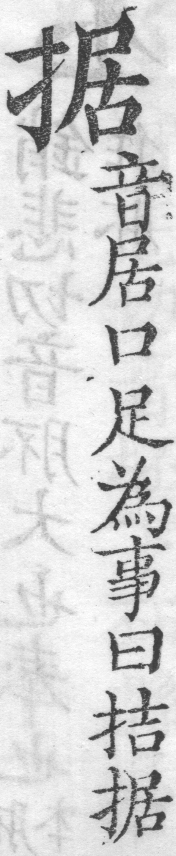 据
音居口足為事曰拮据